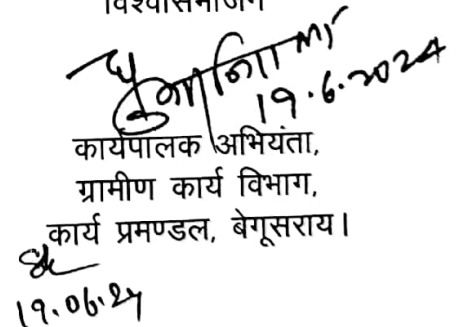 विश्वासभाजन
19.6.2024
कार्यपालक अभियंता,
ग्रामीण कार्य विभाग,
कार्य प्रमण्डल, बेगूसराय।
19.06.24